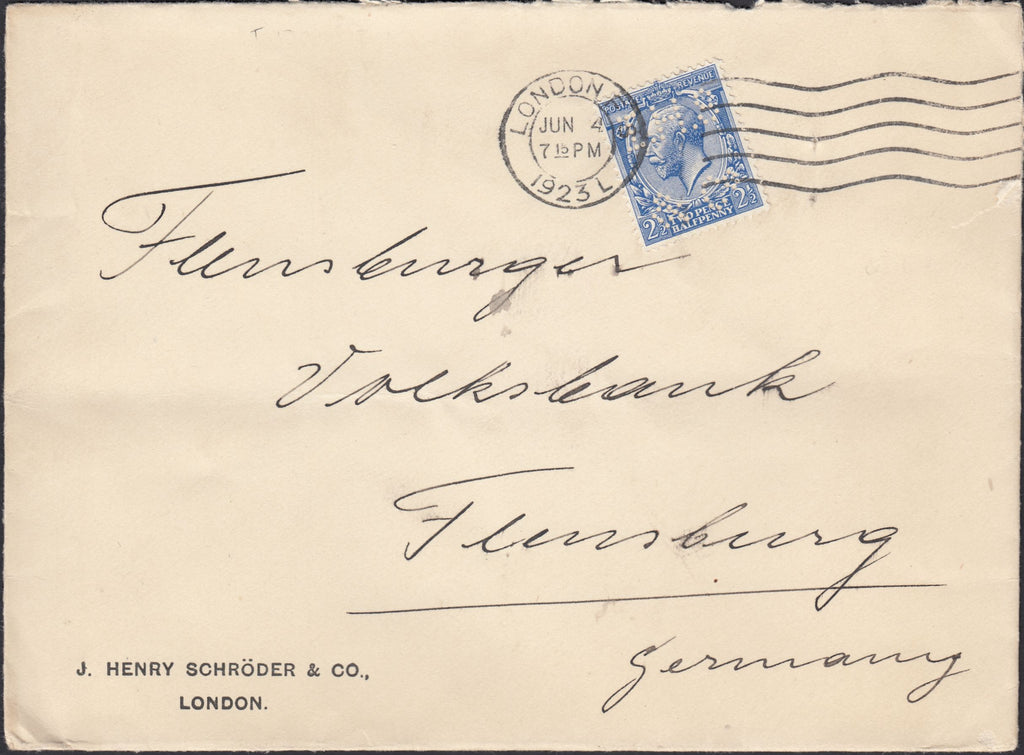 LONDON
JUN 4
7 15 PM
1923 L
POSTAGE REVENUE
2½ TWO PENCE 2½
HALFPENNY
Flensburger
Volksbank
Flensburg
Germany
J. HENRY SCHRÖDER & CO.,
LONDON.